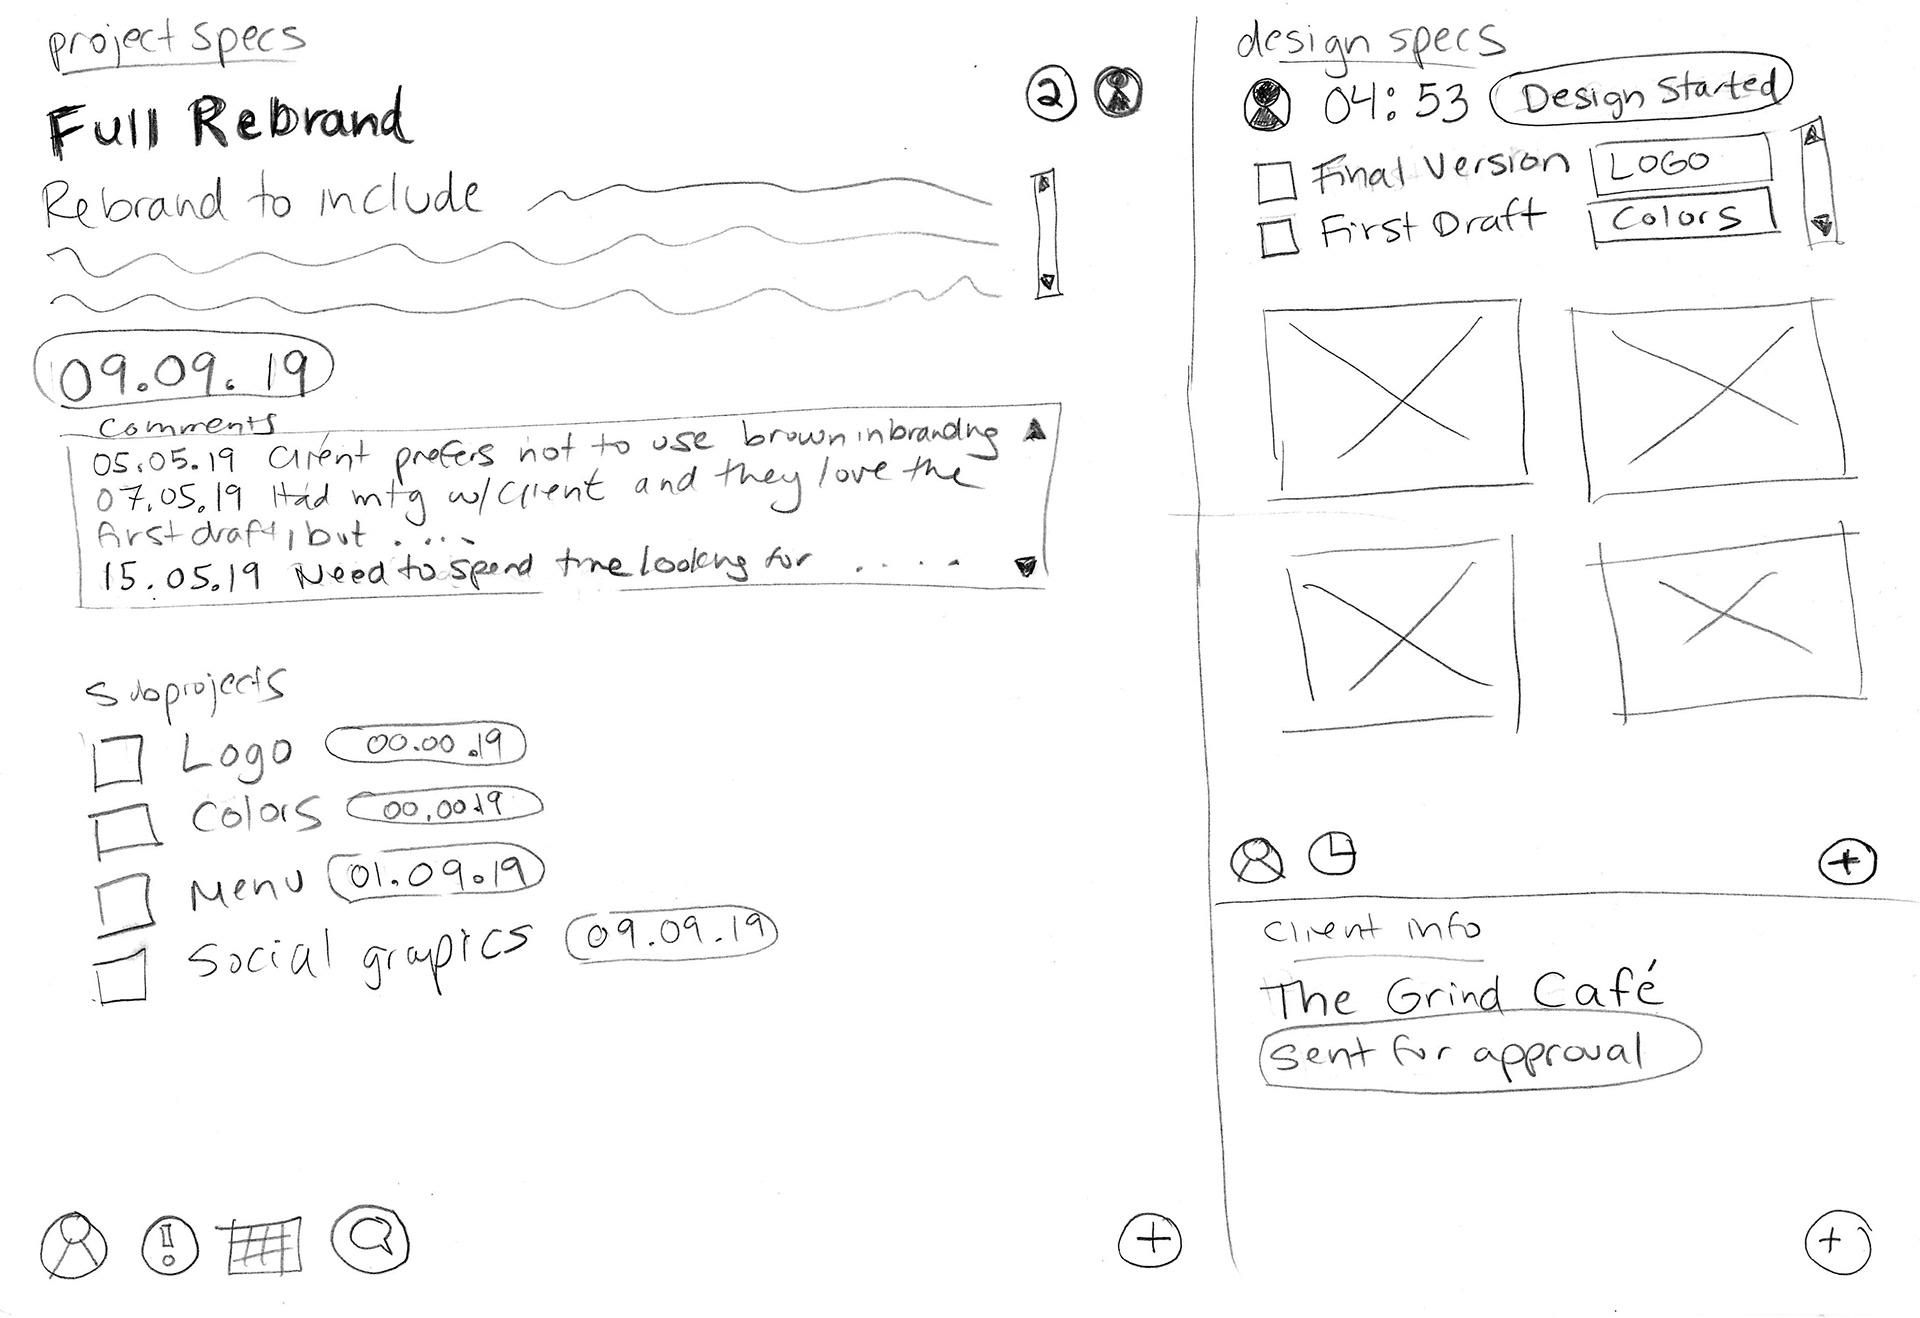 project specs
Full Rebrand
2
Rebrand to include
09.09.19
Comments
05.05.19 Client prefers not to use brown in branding
07.05.19 Had mtg w/client and they love the
first draft, but ....
15.05.19 Need to spend time looking for .....
Subprojects
Logo 00.00.19
Colors 00.00.19
Menu 01.09.19
Social grapics 09.09.19
design specs
04:53 Design Started
Final Version LOGO
First Draft Colors
client info
The Grind Café
sent for approval